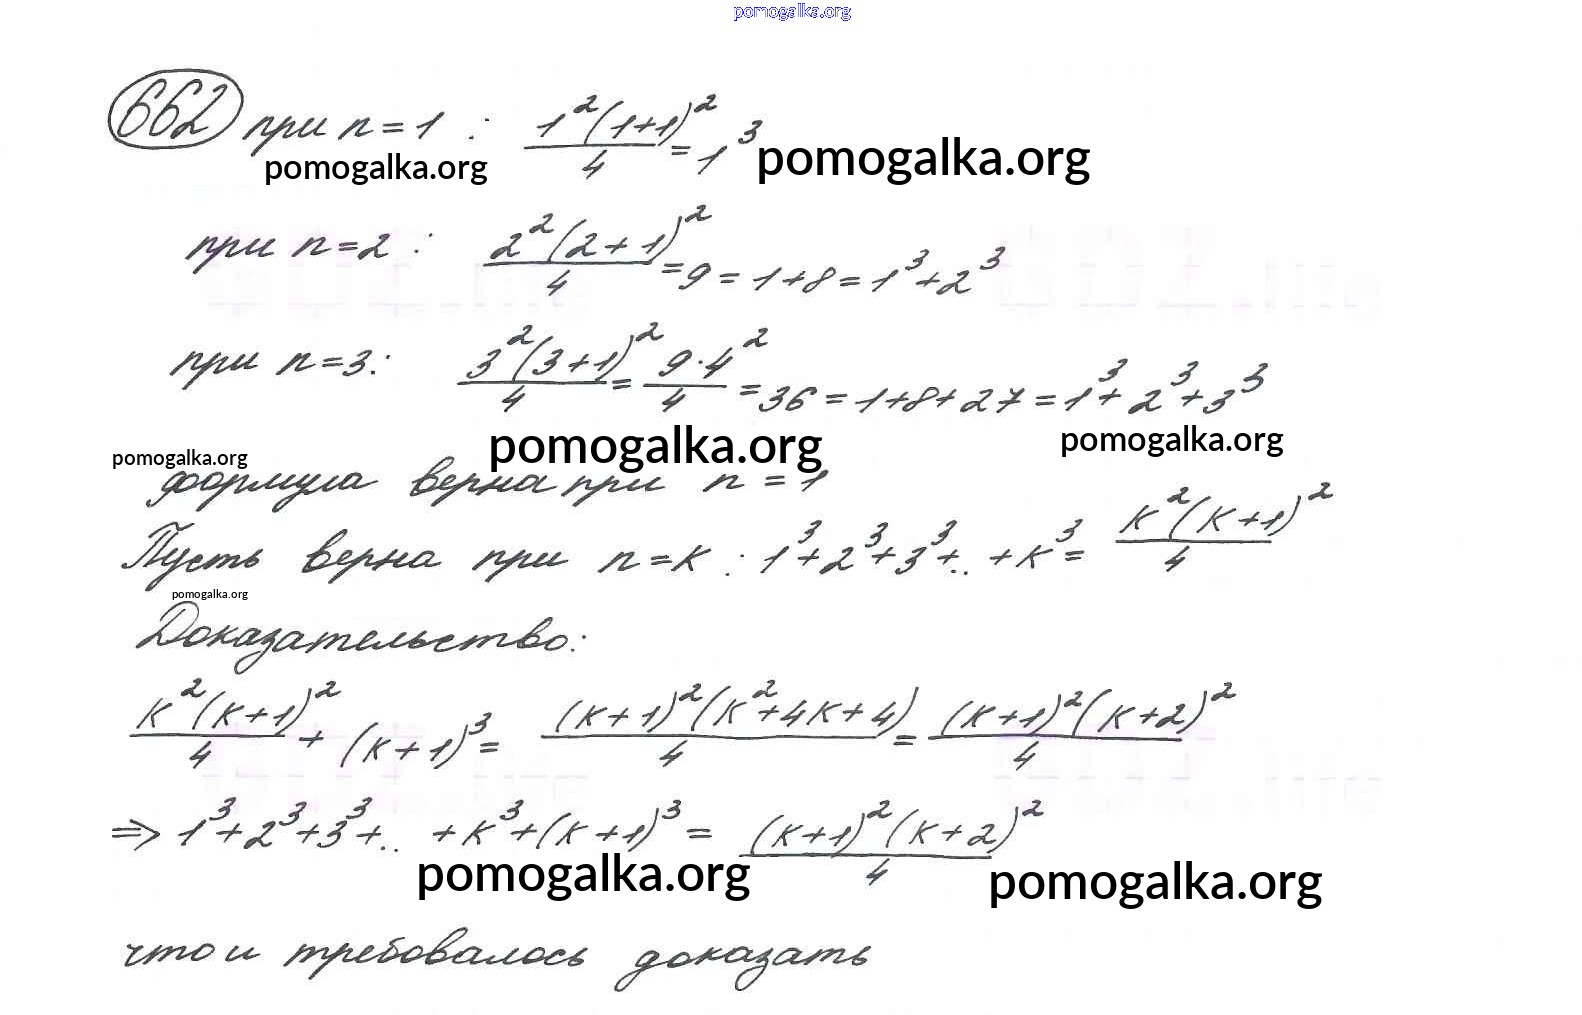 pomogalka.org
662 при n=1 : 1²(1+1)²/4 = 1³
pomogalka.org pomogalka.org
при n=2 : 2²(2+1)²/4 = 9 = 1+8 = 1³+2³
при n=3: 3²(3+1)²/4 = 9·4²/4 = 36 = 1+8+27 = 1³+2³+3³
pomogalka.org pomogalka.org pomogalka.org
формула верна при n=1
Пусть верна при n=к : 1³+2³+3³+.. +к³= к²(к+1)²/4
pomogalka.org
Доказательство:
к²(к+1)²/4 + (к+1)³= (к+1)²(к²+4к+4)/4 = (к+1)²(к+2)²/4
⇒ 1³+2³+3³+.. +к³+(к+1)³ = (к+1)²(к+2)²/4
pomogalka.org pomogalka.org
что и требовалось доказать